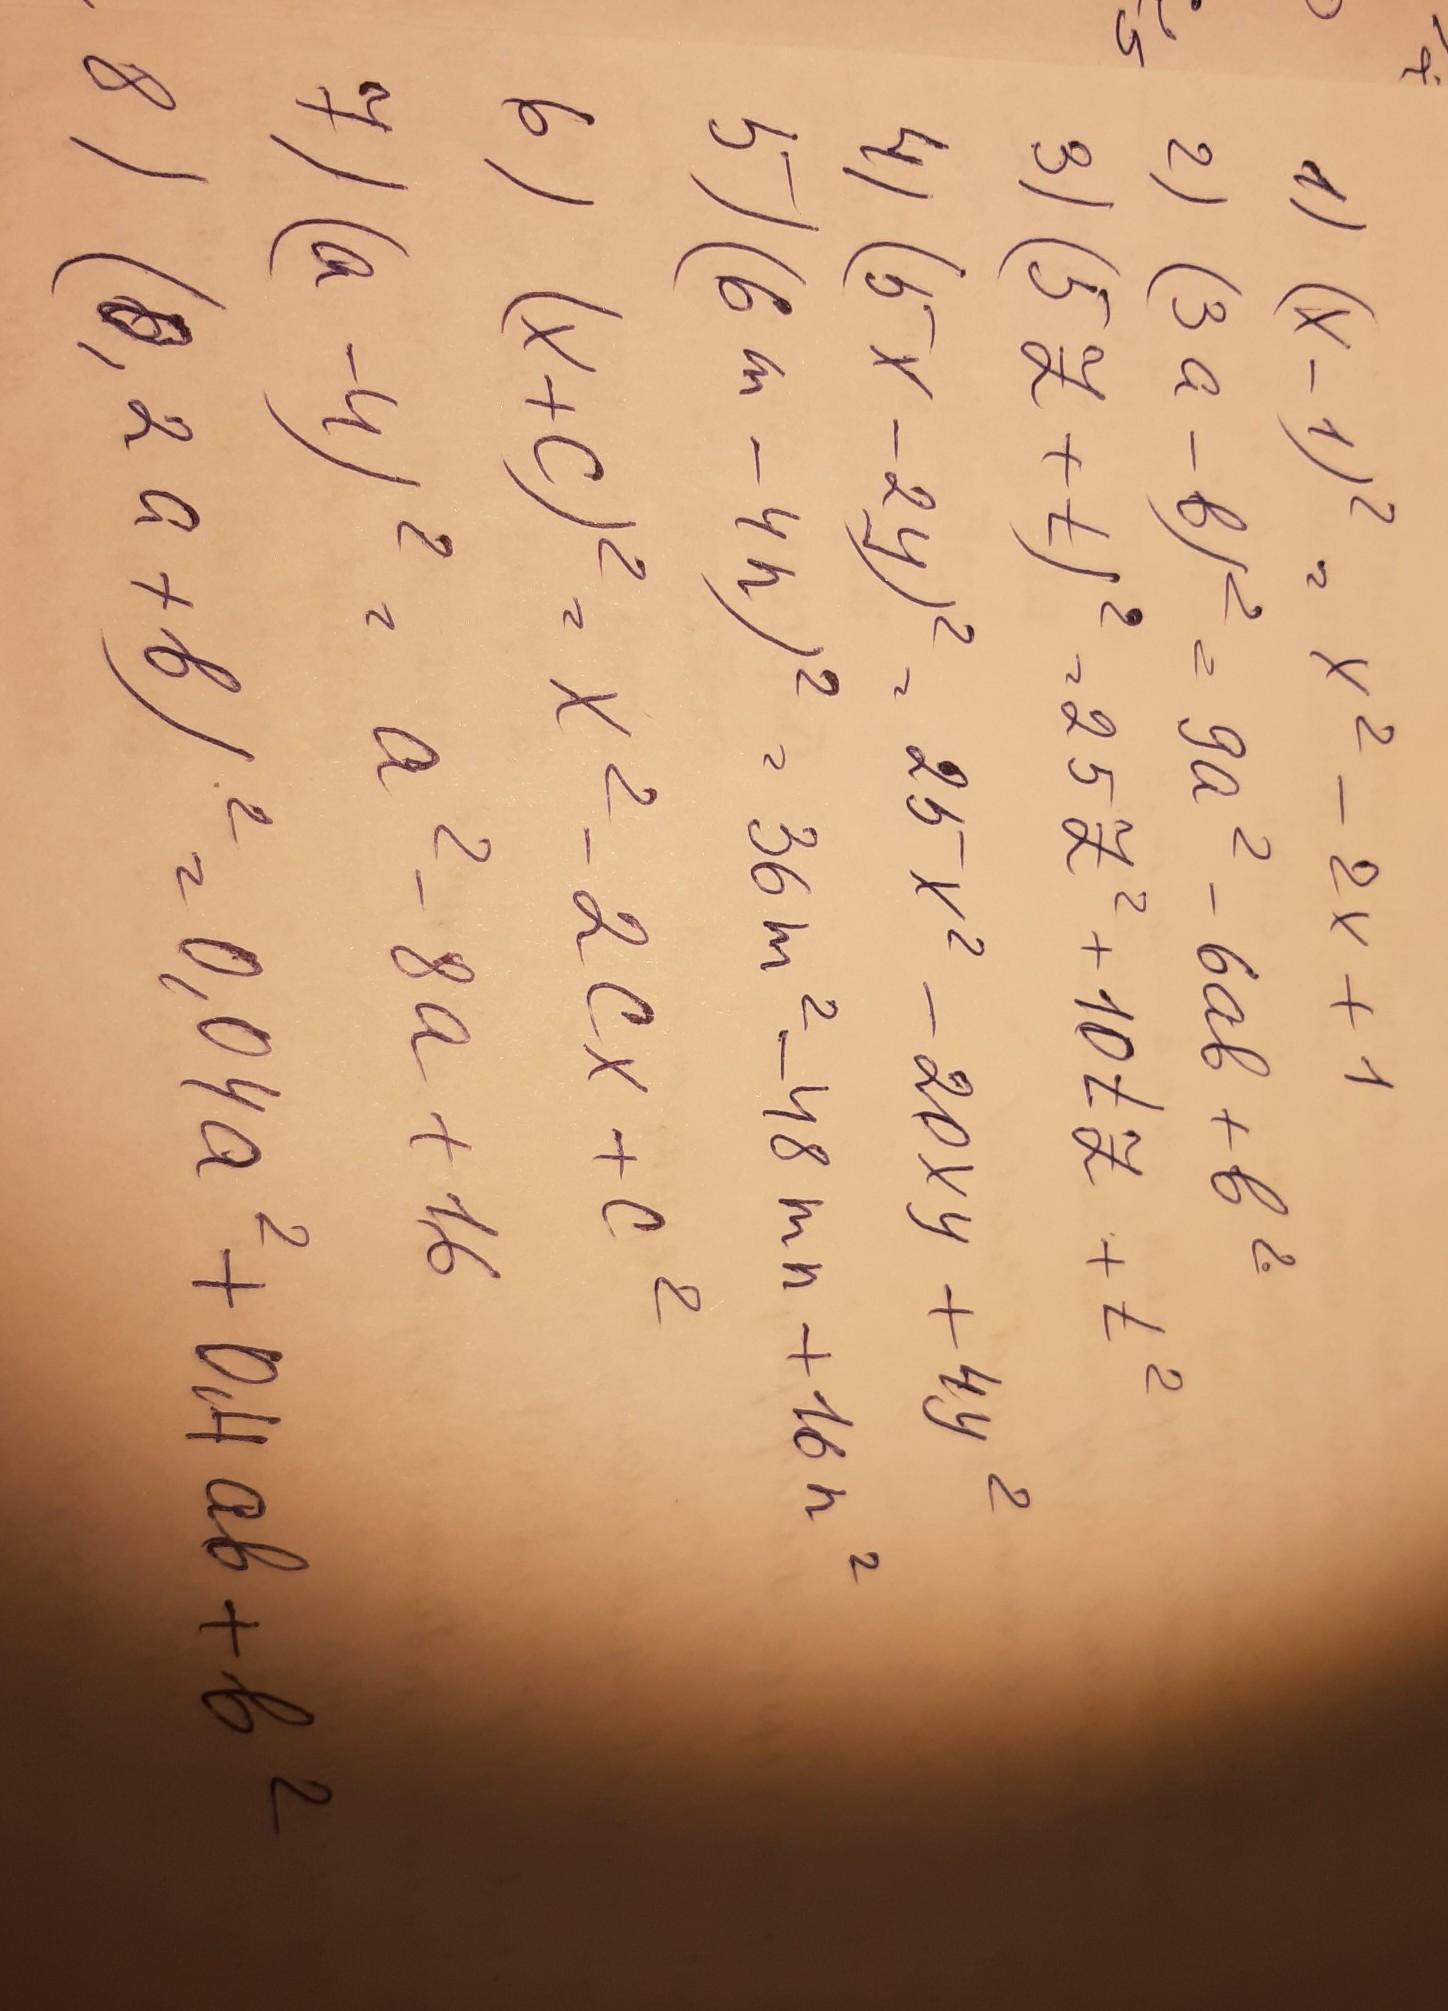 1) (x-1)² = x² - 2x + 1
2) (3a - b)² = 9a² - 6ab + b²
3) (5z + t)² = 25z² + 10tz + t²
4) (5x - 2y)² = 25x² - 20xy + 4y²
5) (6m - 4n)² = 36m² - 48mn + 16n²
6) (x+c)² = x² - 2cx + c²
7) (a - 4)² = a² - 8a + 16
8) (0,2a + b)² = 0,04a² + 0,4ab + b²